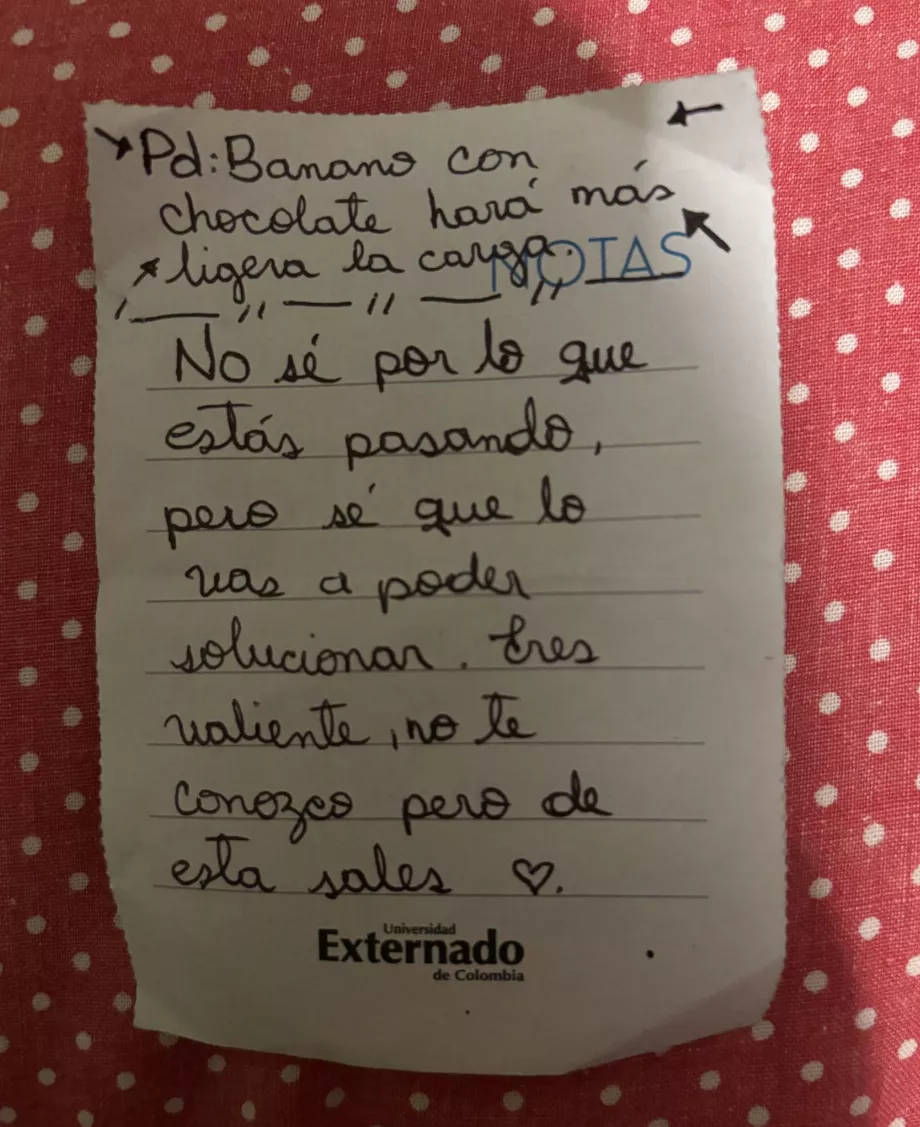 Pd: Banano con
chocolate hará más
ligera la carga.
NOTAS
No sé por lo que
estás pasando,
pero sé que lo
vas a poder
solucionar. Eres
valiente, no te
conozco pero de
esta sales ♡.
Universidad
Externado
de Colombia